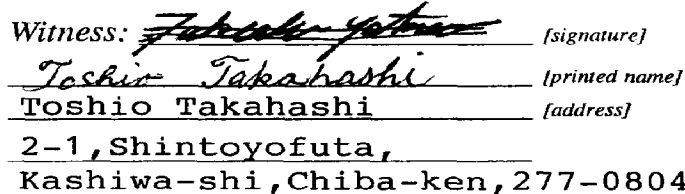 Witness: [signature]
Toshio Takahashi [printed name]
Toshio Takahashi [address]
2-1,Shintoyofuta,
Kashiwa-shi,Chiba-ken,277-0804